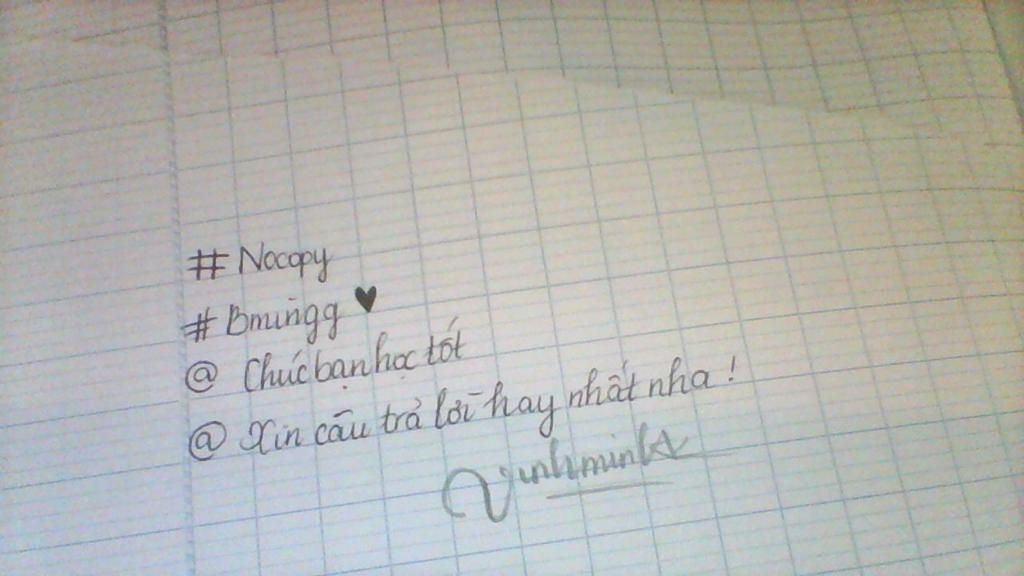 # Nocopy
# Bmingg ♥
@ Chúc bạn học tốt
@ Xin câu trả lời hay nhất nha !
Vinhminh